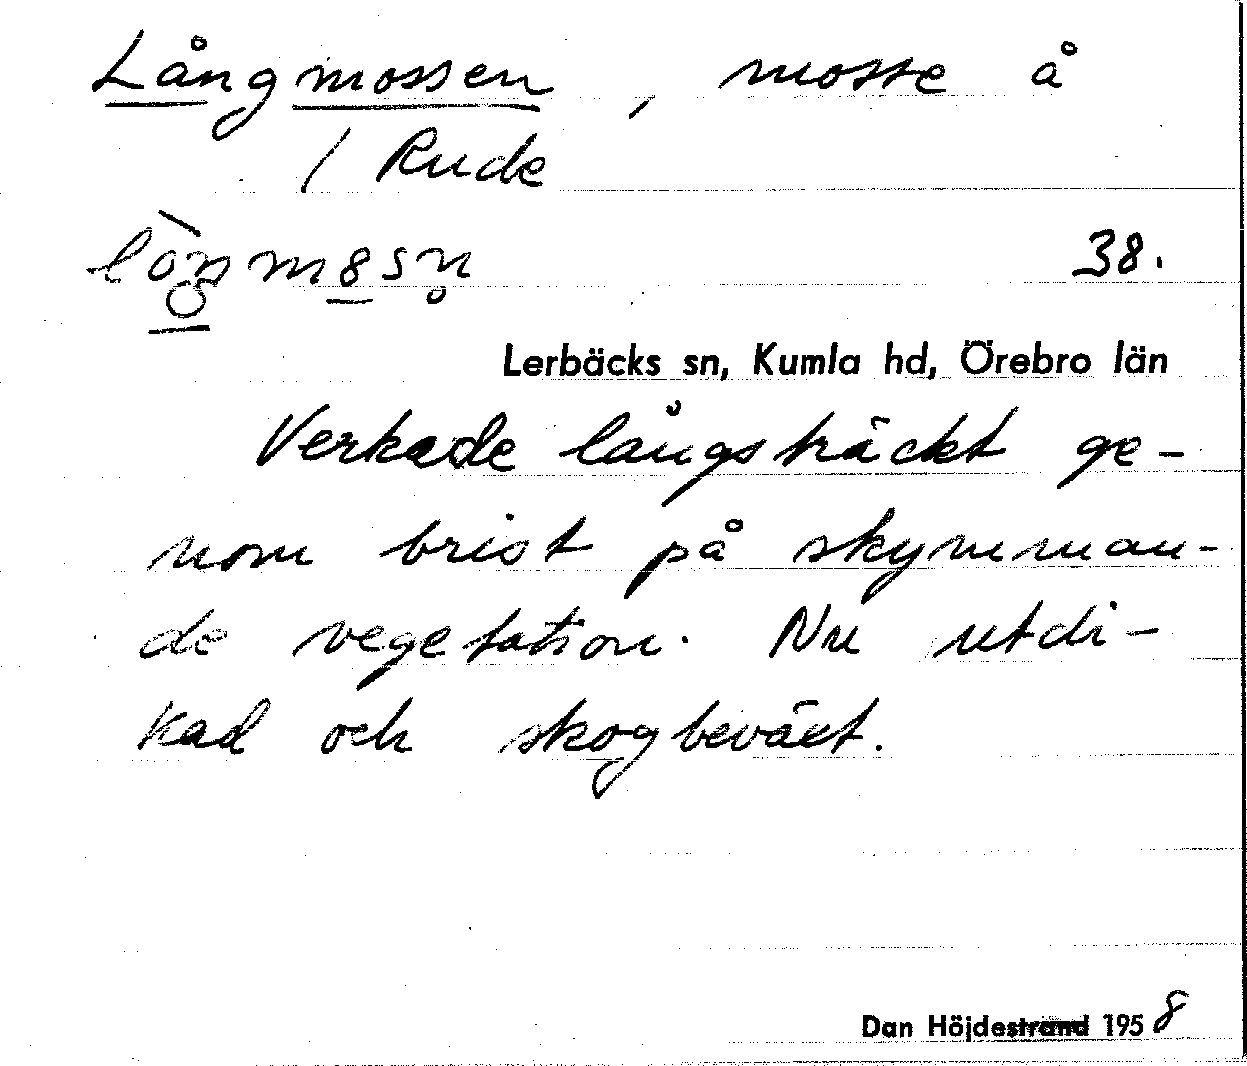 Långmossen, mosse å
/ Rude
38.
Lerbäcks sn, Kumla hd, Örebro län
Verkade långsträckt ge-
nom brist på skymman-
de vegetation. Nu utdi-
kad och skogbeväxt.
Dan Höjdestrand 1958